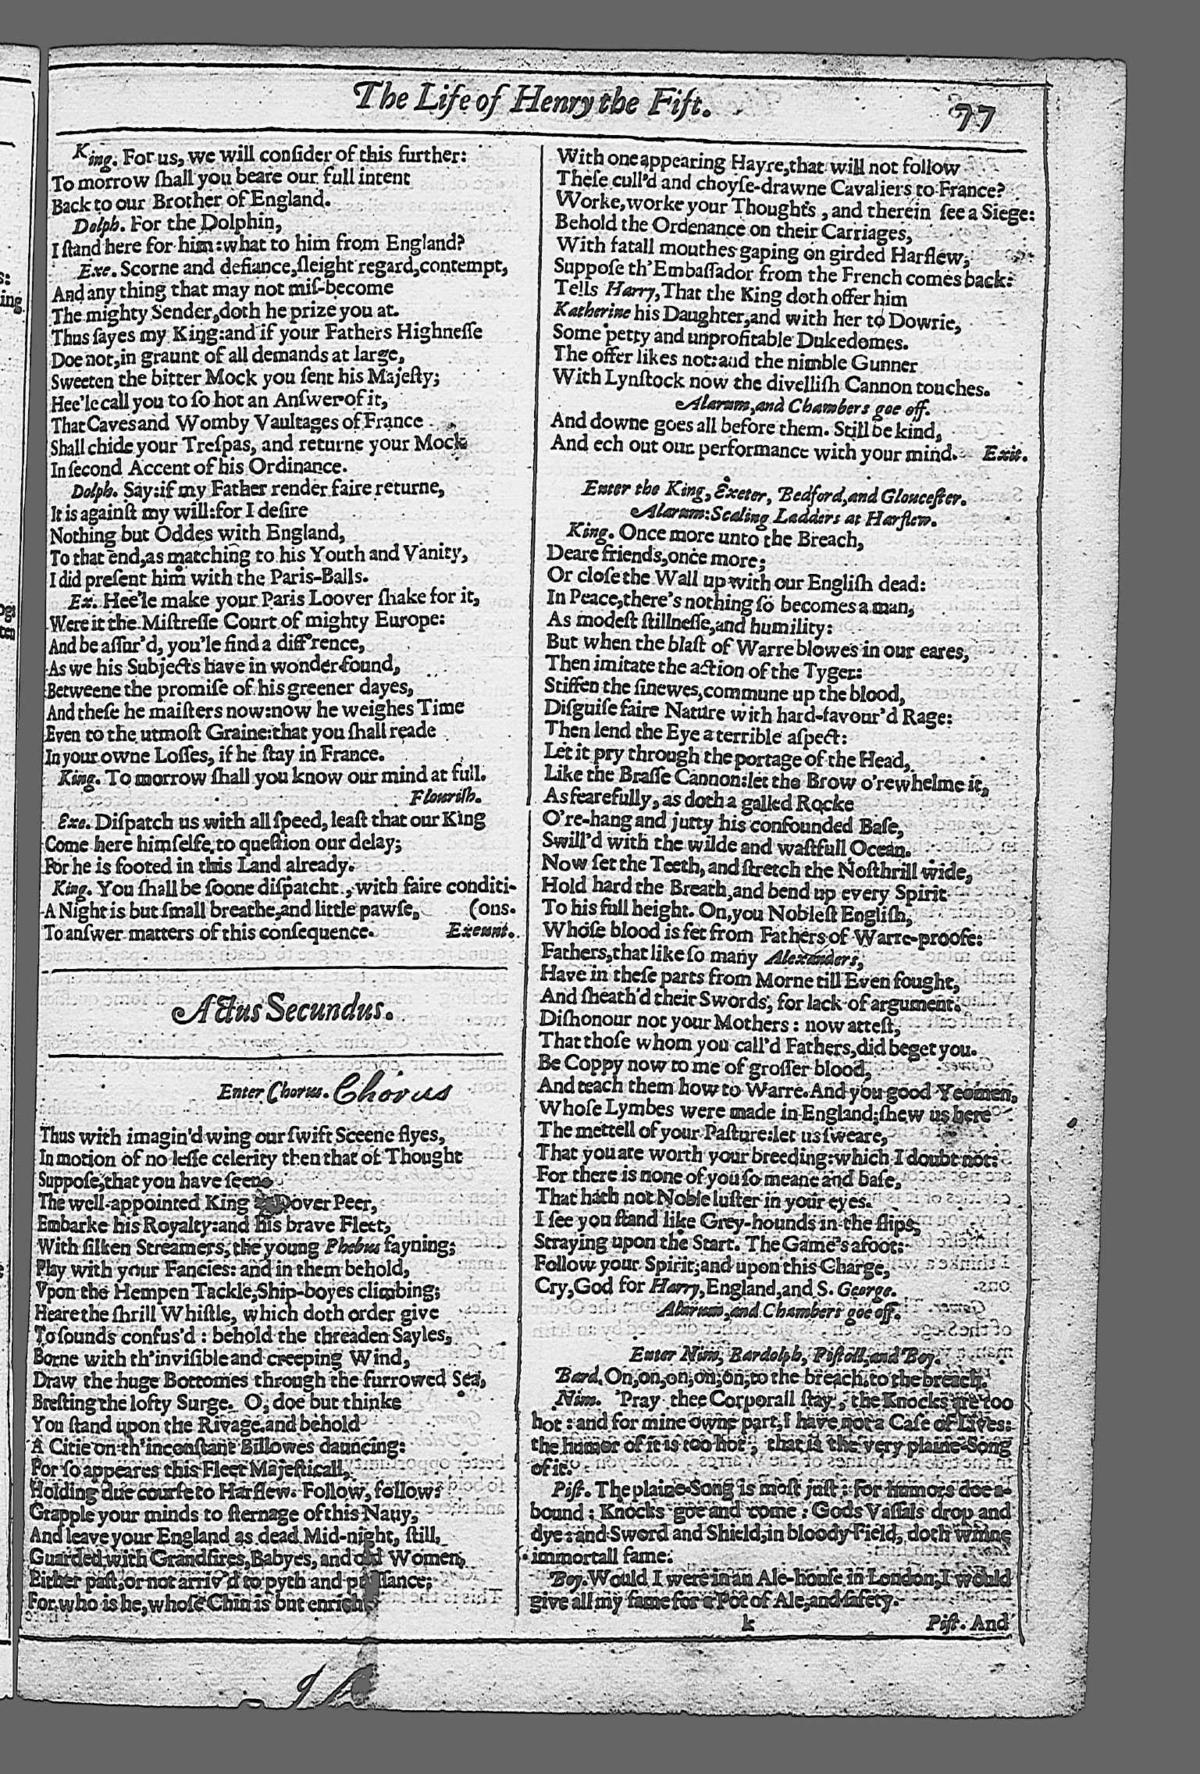 The Life of Henry the Fift.
77
King. For us, we will conſider of this further:
To morrow ſhall you beare our full intent
Back to our Brother of England.
Dolph. For the Dolphin,
I ſtand here for him: what to him from England?
Exe. Scorne and defiance, ſleight regard, contempt,
And any thing that may not miſ-become
The mighty Sender, doth he prize you at.
Thus ſayes my King: and if your Fathers Highneſſe
Doe not, in graunt of all demands at large,
Sweeten the bitter Mock you ſent his Majeſty;
Hee'le call you to ſo hot an Anſwer of it,
That Caves and Womby Vaultages of France
Shall chide your Treſpas, and returne your Mock
In ſecond Accent of his Ordinance.
Dolph. Say: if my Father render faire returne,
It is againſt my will: for I deſire
Nothing but Oddes with England,
To that end, as matching to his Youth and Vanity,
I did preſent him with the Paris-Balls.
Ex. Hee'le make your Paris Loover ſhake for it,
Were it the Miſtreſſe Court of mighty Europe:
And be aſſur'd, you'le find a diff'rence,
As we his Subjects have in wonder found,
Betweene the promiſe of his greener dayes,
And theſe he maiſters now: now he weighes Time
Even to the utmoſt Graine: that you ſhall reade
In your owne Loſſes, if he ſtay in France.
King. To morrow ſhall you know our mind at full.
Flouriſh.
Exe. Diſpatch us with all ſpeed, leaſt that our King
Come here himſelfe to queſtion our delay;
For he is footed in this Land already.
King. You ſhall be ſoone diſpatcht, with faire conditi-
A Night is but ſmall breathe, and little pawſe, (ons.
To anſwer matters of this conſequence. Exeunt.
Actus Secundus.
Enter Chorus. Chorus
Thus with imagin'd wing our ſwift Sceene flyes,
In motion of no leſſe celerity then that of Thought
Suppoſe, that you have ſeene
The well-appointed King Dover Peer,
Embarke his Royalty: and his brave Fleet,
With ſilken Streamers, the young Phebus fayning;
Play with your Fancies: and in them behold,
Vpon the Hempen Tackle, Ship-boyes climbing;
Heare the ſhrill Whiſtle, which doth order give
To ſounds confus'd: behold the threaden Sayles,
Borne with th'inviſible and creeping Wind,
Draw the huge Bottomes through the furrowed Sea,
Breſting the lofty Surge. O, doe but thinke
You ſtand upon the Rivage, and behold
A Citie on th'inconſtant Billowes dauncing:
For ſo appeares this Fleet Majeſticall,
Holding due courſe to Harflew. Follow, follow:
Grapple your minds to ſternage of this Navy,
And leave your England as dead Mid-night, ſtill,
Guarded with Grandſires, Babyes, and old Women,
Either paſt, or not arriv'd to pyth and
For who is he, whoſe Chin is but enrich'd
With one appearing Hayre, that will not follow
Theſe cull'd and choyſe-drawne Cavaliers to France?
Worke, worke your Thoughts, and therein ſee a Siege:
Behold the Ordenance on their Carriages,
With fatall mouthes gaping on girded Harflew,
Suppoſe th'Embaſſador from the French comes back:
Tells Harry, That the King doth offer him
Katherine his Daughter, and with her to Dowrie,
Some petty and unprofitable Dukedomes.
The offer likes not: and the nimble Gunner
With Lynſtock now the divelliſh Cannon touches.
Alarum, and Chambers goe off.
And downe goes all before them. Still be kind,
And ech out our performance with your mind. Exit.
Enter the King, Exeter, Bedford, and Glouceſter.
Alarum: Scaling Ladders at Harflew.
King. Once more unto the Breach,
Deare friends, once more;
Or cloſe the Wall up with our Engliſh dead:
In Peace, there's nothing ſo becomes a man,
As modeſt ſtillneſſe, and humility:
But when the blaſt of Warre blowes in our eares,
Then imitate the action of the Tyger:
Stiffen the ſinewes, commune up the blood,
Diſguiſe faire Nature with hard-favour'd Rage:
Then lend the Eye a terrible aſpect:
Let it pry through the portage of the Head,
Like the Braſſe Cannon: let the Brow o'rewhelme it,
As fearefully, as doth a galled Rocke
O're-hang and jutty his confounded Baſe,
Swill'd with the wilde and waſtfull Ocean.
Now ſet the Teeth, and ſtretch the Noſthrill wide,
Hold hard the Breath, and bend up every Spirit
To his full height. On, you Nobleſt Engliſh,
Whoſe blood is fet from Fathers of Warre-proofe:
Fathers, that like ſo many Alexanders,
Have in theſe parts from Morne till Even fought,
And ſheath'd their Swords, for lack of argument.
Diſhonour not your Mothers: now atteſt,
That thoſe whom you call'd Fathers, did beget you.
Be Coppy now to me of groſſer blood,
And teach them how to Warre. And you good Yeomen,
Whoſe Lymbes were made in England; ſhew us here
The mettell of your Paſture: let us ſweare,
That you are worth your breeding: which I doubt not:
For there is none of you ſo meane and baſe,
That hath not Noble luſter in your eyes.
I ſee you ſtand like Grey-hounds in the ſlips,
Straying upon the Start. The Game's afoot:
Follow your Spirit; and upon this Charge,
Cry, God for Harry, England, and S. George.
Alarum, and Chambers goe off.
Enter Nim, Bardolph, Piſtoll, and Boy.
Bard. On, on, on, on, on, to the breach, to the breach.
Nim. 'Pray thee Corporall ſtay, the Knocks are too
hot: and for mine owne part, I have not a Caſe of Lives:
the humor of it is too hot, that is the very plaine-Song
of it.
Piſt. The plaine-Song is moſt juſt: for humors doe a-
bound: Knocks goe and come: Gods Vaſſals drop and
dye: and Sword and Shield, in bloody Field, doth winne
immortall fame.
Boy. Would I were in an Ale-houſe in London, I would
give all my fame for a Pot of Ale, and ſafety.
k
Piſt. And